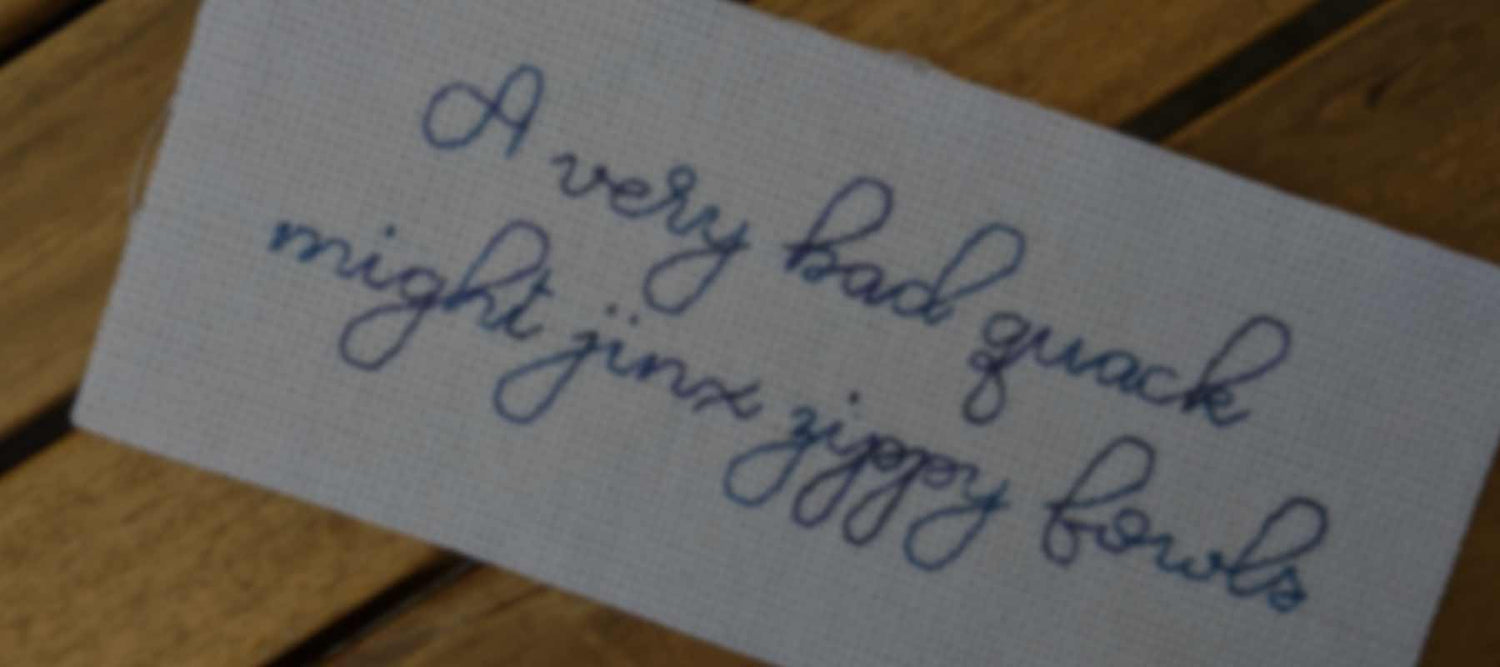 A very bad quack
might jinx zippy fowls